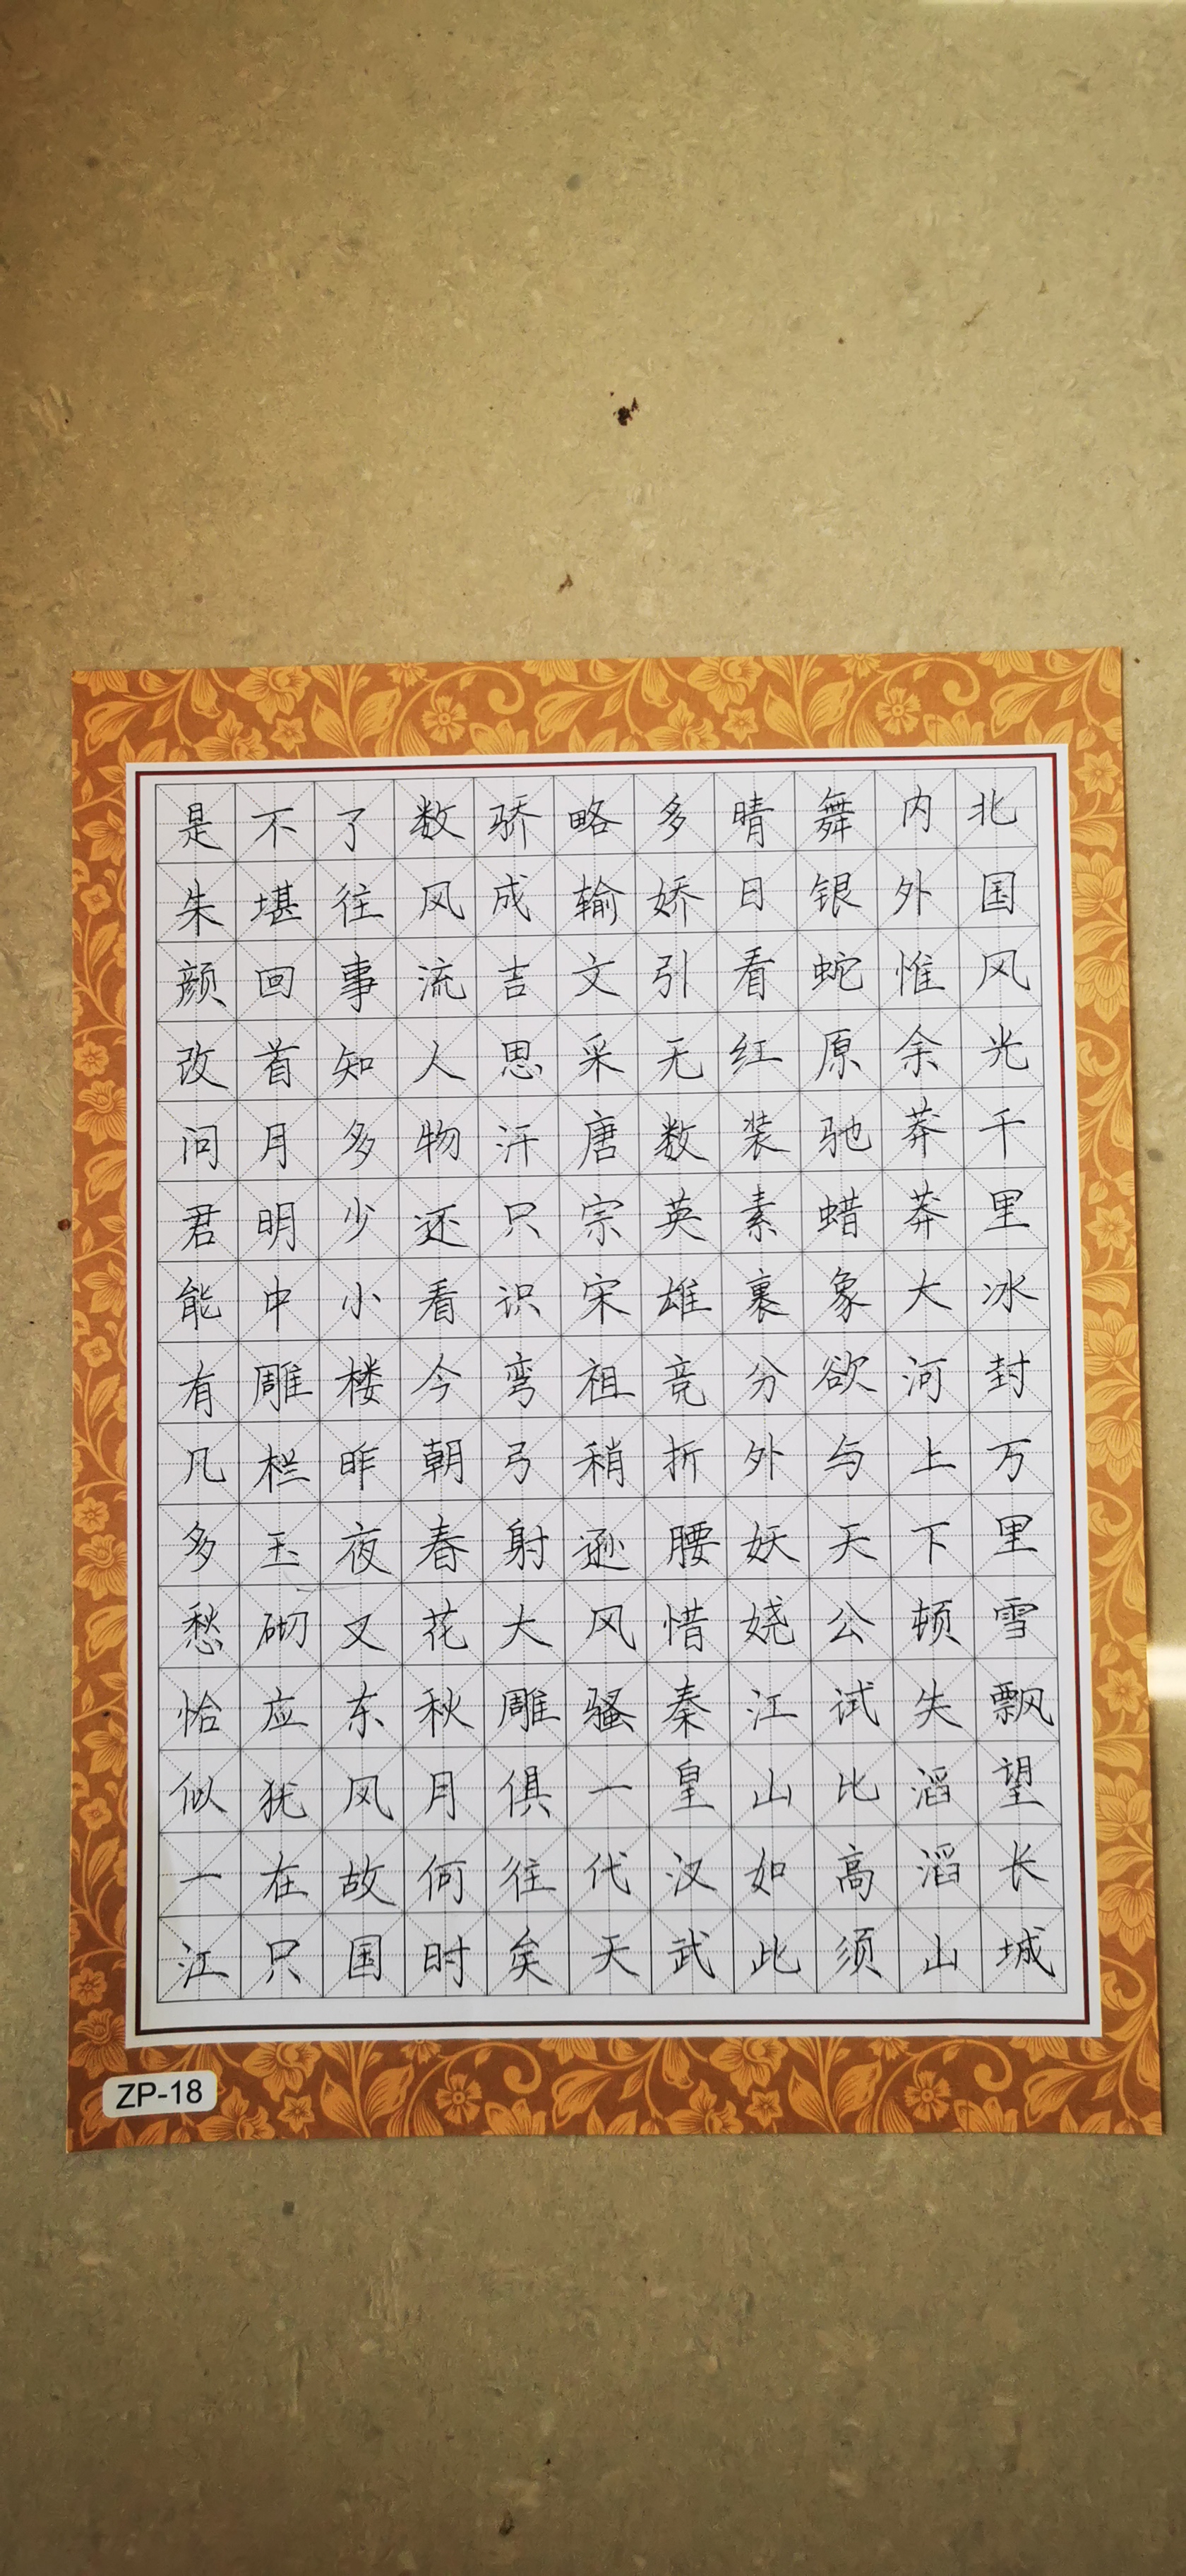 北国风光千里冰封万里雪飘望长城
内外惟余莽莽大河上下顿失滔滔山
舞银蛇原驰蜡象欲与天公试比高须
晴日看红装素裹分外妖娆江山如此
多娇引无数英雄竞折腰惜秦皇汉武
略输文采唐宗宋祖稍逊风骚一代天
骄成吉思汗只识弯弓射大雕俱往矣
数风流人物还看今朝春花秋月何时
了往事知多少小楼昨夜又东风故国
不堪回首月明中雕栏玉砌应犹在只
是朱颜改问君能有几多愁恰似一江
ZP-18